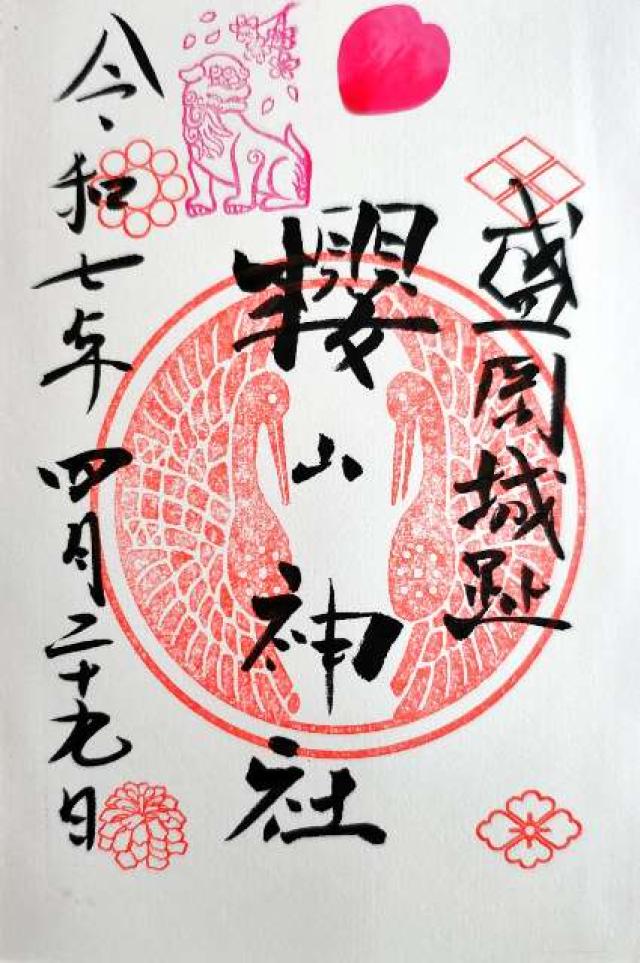 盛岡城趾
櫻山神社
令和七年四月二十九日